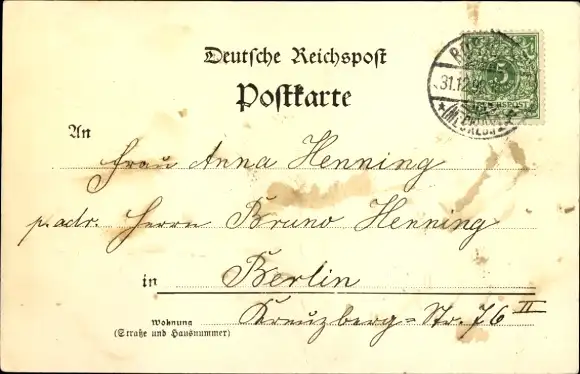 Deutsche Reichspost
Postkarte
5
REICHSPOST
31.12.9
An
Frau Anna Henning
p. adr. Herrn Bruno Henning
in Berlin
Wohnung
(Straße und Hausnummer)
Kreuzberg=Str. 76 II